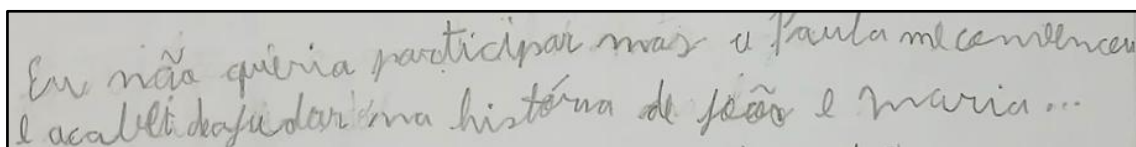 Eu não queria participar mas a Paula me convenceu
e acabei deajudar na história de João e maria...